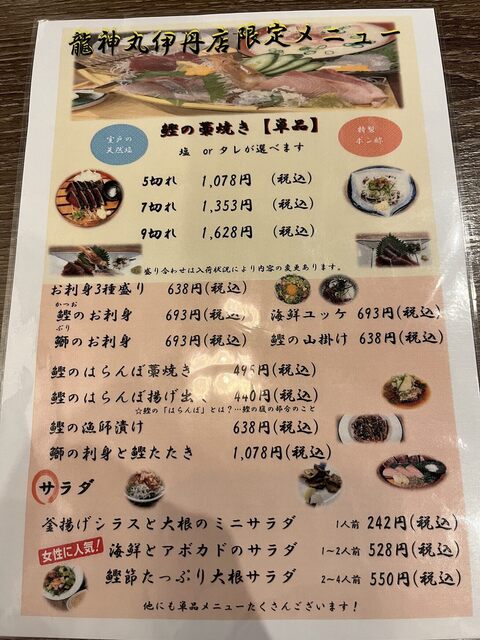 龍神丸伊丹店限定メニュー
室戸の
天然塩
鰹の藁焼き【単品】
塩 or タレが選べます
特製
ポン酢
5切れ 1,078円 (税込)
7切れ 1,353円 (税込)
9切れ 1,628円 (税込)
盛り合わせは入荷状況により内容の変更あります。
お刺身3種盛り 638円(税込)
かつお
鰹のお刺身 693円(税込) 海鮮ユッケ 693円(税込)
ぶり
鰤のお刺身 693円(税込) 鰹の山掛け 638円(税込)
鰹のはらんぼ藁焼き 495円(税込)
鰹のはらんぼ揚げ出し 440円(税込)
☆鰹の「はらんぼ」とは?…鰹の腹の部分のこと
鰹の漁師漬け 638円(税込)
鰤の刺身と鰹たたき 1,078円(税込)
サラダ
釜揚げシラスと大根のミニサラダ 1人前 242円(税込)
女性に人気! 海鮮とアボカドのサラダ 1~2人前 528円(税込)
鰹節たっぷり大根サラダ 2~4人前 550円(税込)
他にも単品メニューたくさんございます!